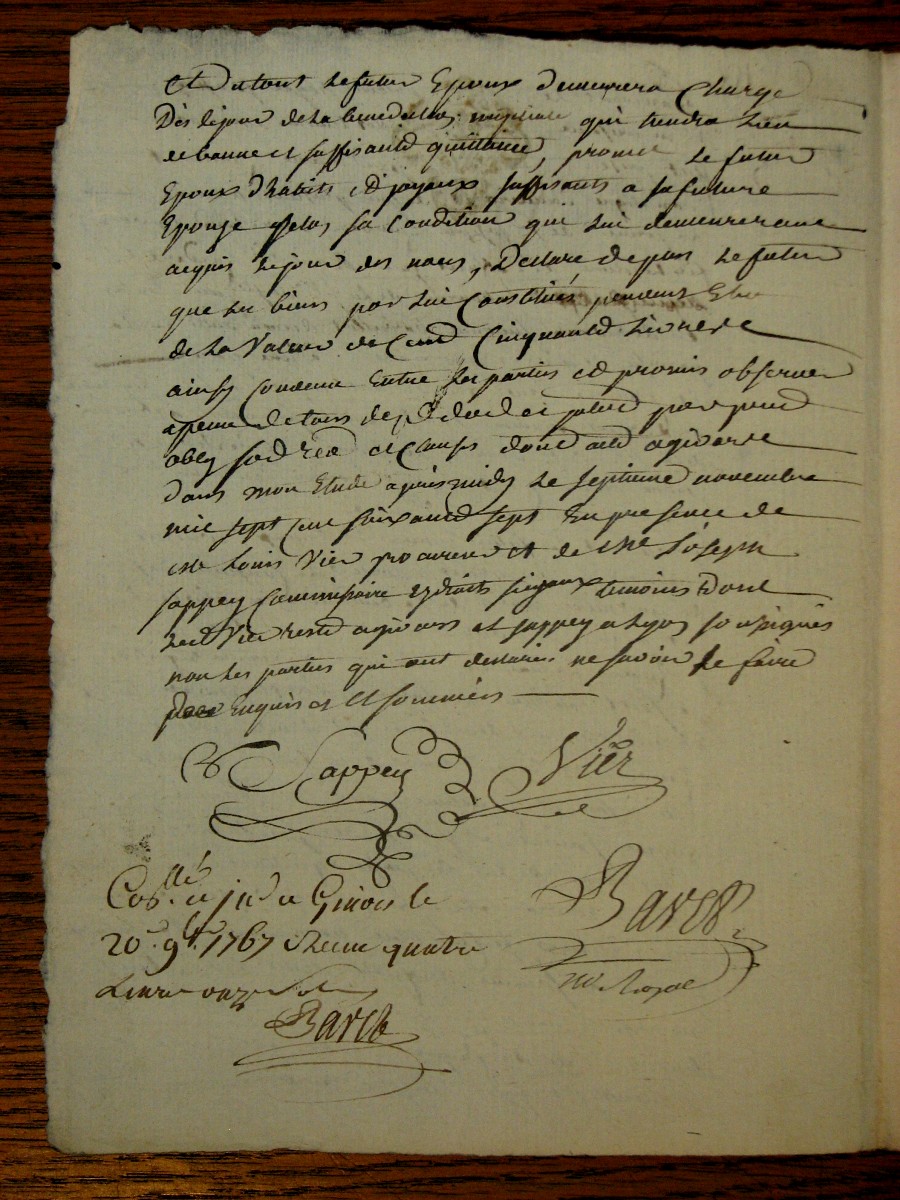 Et du tout le futur Epoux demeurera Chargé
Dès le jour de la benediction nuptiale qui tiendra lieu
de bonne et suffisante quittance, promet le futur
Epoux d'habits et joyaux suffisants a sa future
Epouse selon sa Condition qui lui demeureront
acquis le jour des noces, Declare de plus le futur
que les biens par lui Constitués peuvent Etre
de la Valeur de Cent Cinquante Livres
ainsy Convenu Entre les parties et promis observer
a peine de tous depens
obey dont acte a givors
dans mon Etude apres midy le septieme novembre
mil sept cent soixante sept En presence de
Me Louis Vier procureur et de Me Joseph
sappey Commissaire Es droits seigaux temoins dont
led Vier reste a givors et sappey a Lyon soussignés
non les parties qui ont declaré ne savoir le faire
Enquis et Et sommées
Sappey Vier
Con.llé a Givors le
20e 9bre 1767 Receu quatre
Livres onze Sols
Baret
no. Royal
Baret